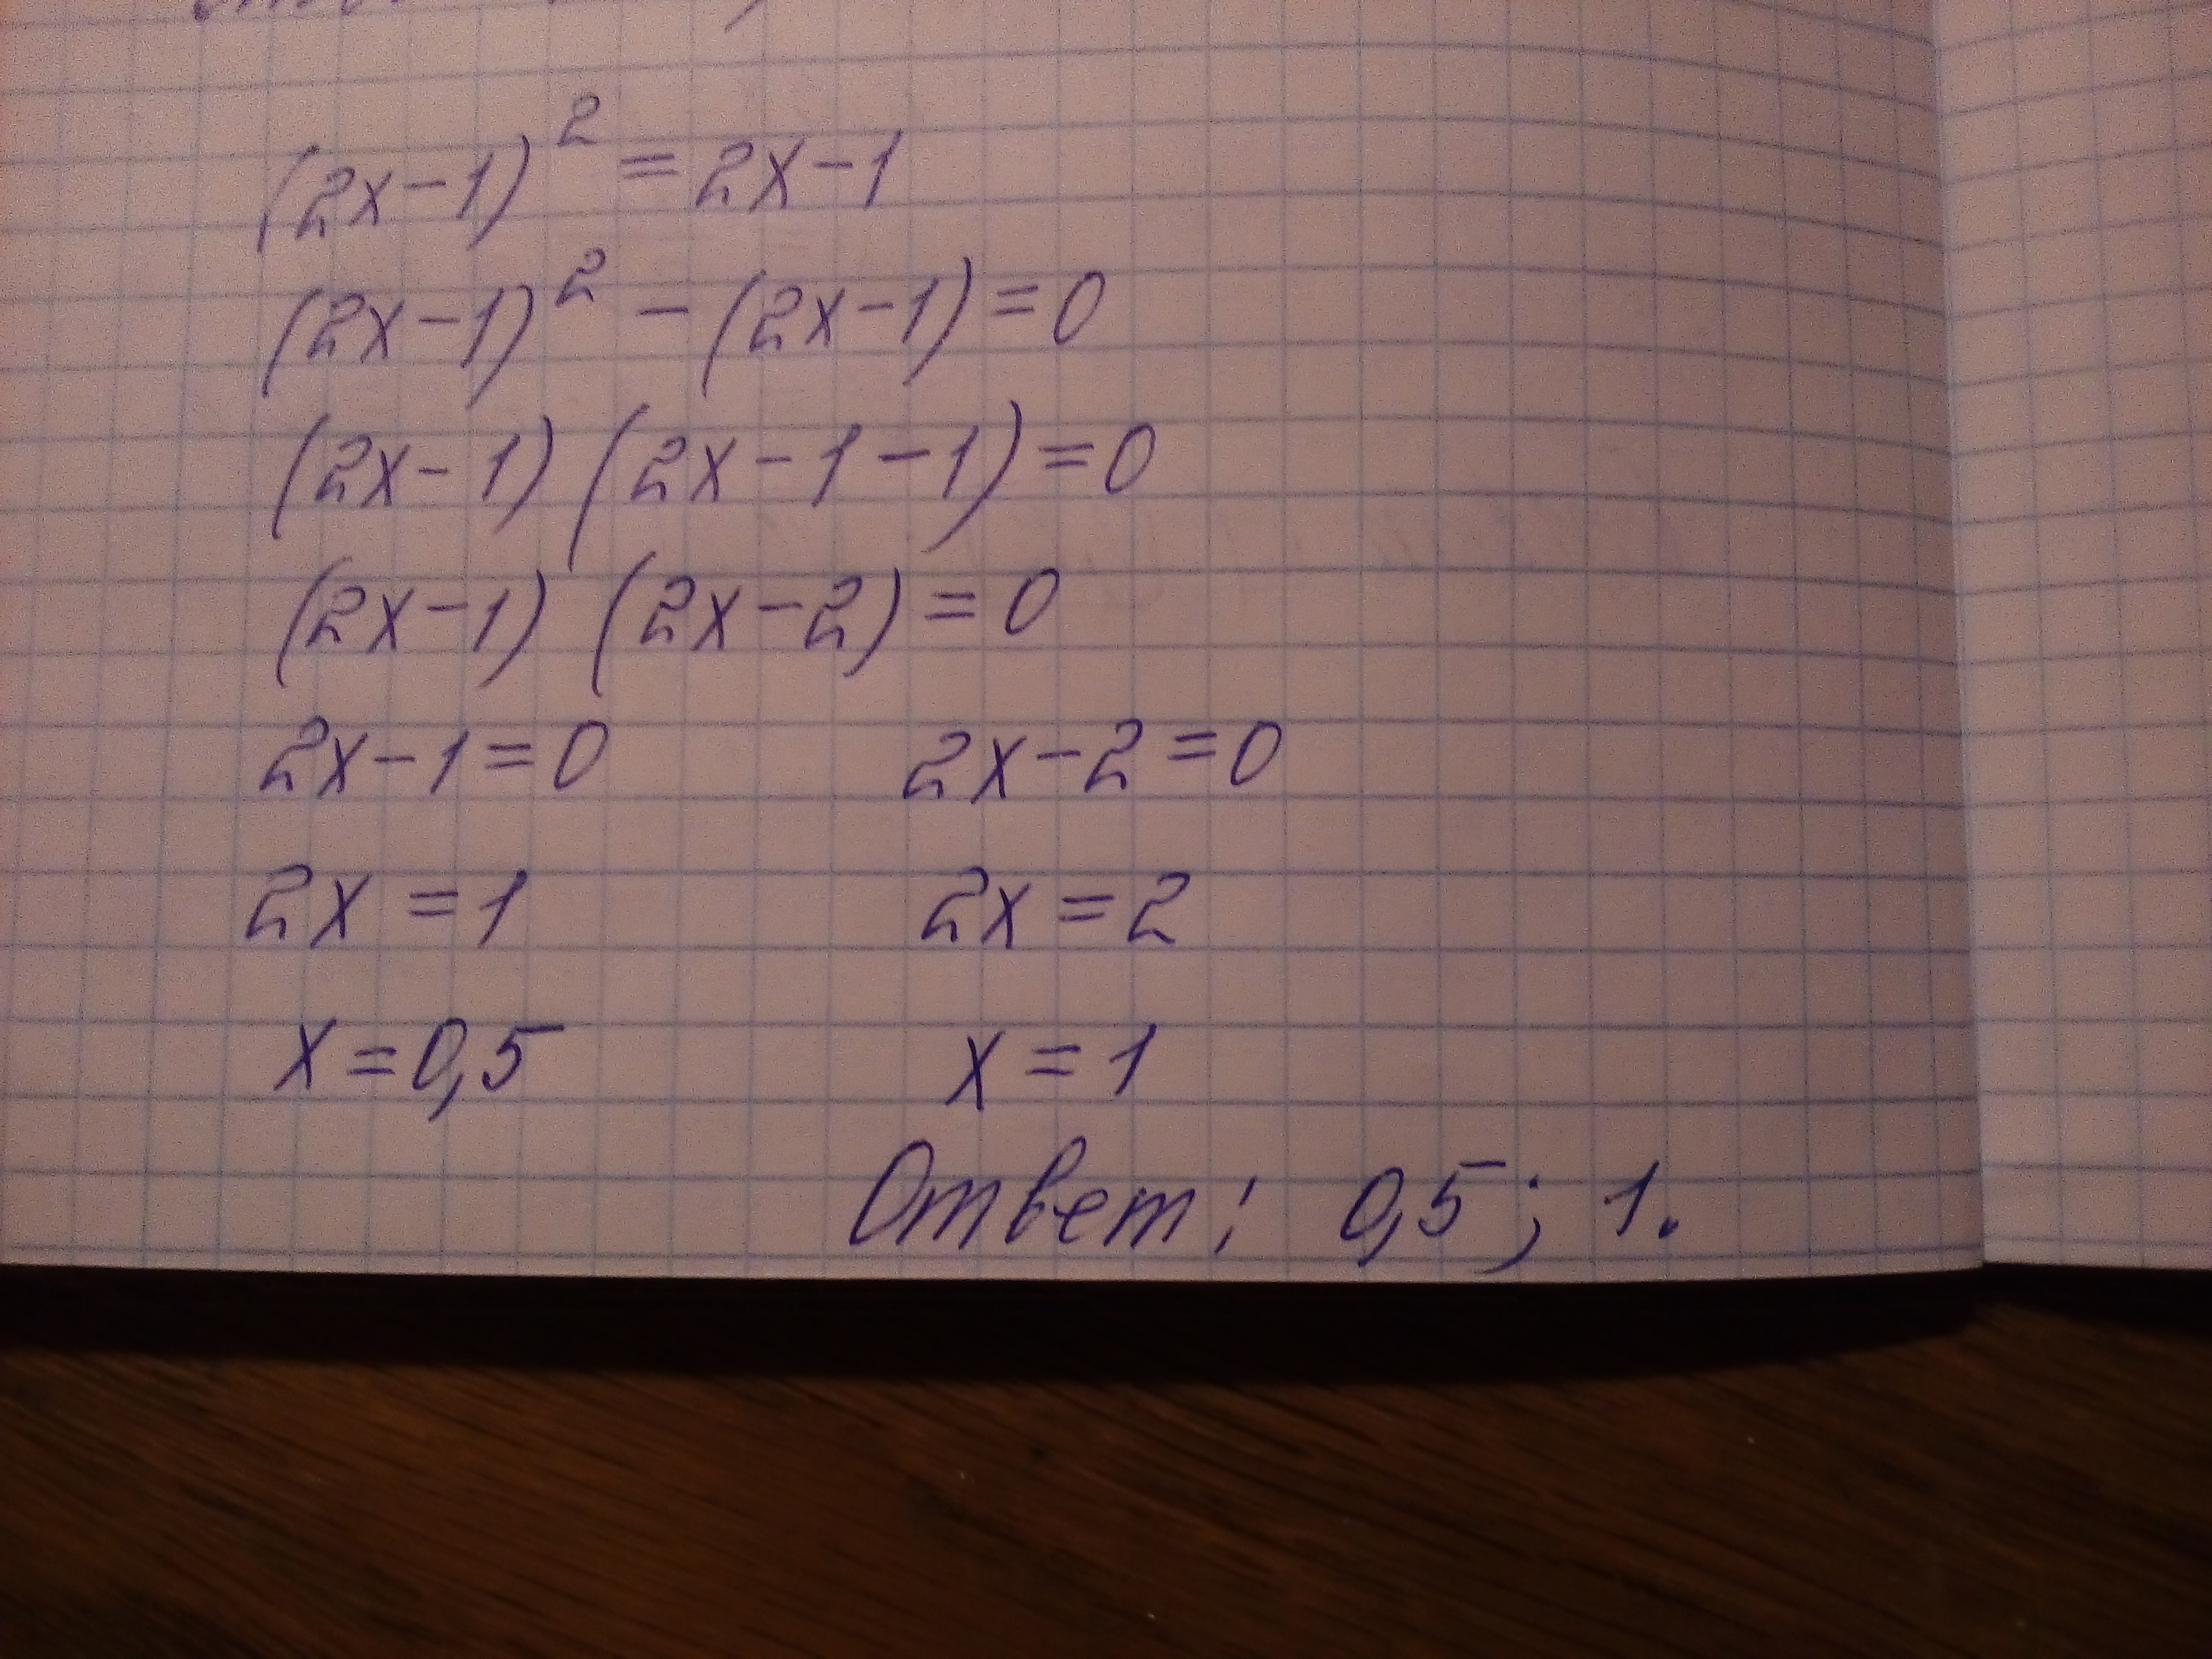 (2x-1)² = 2x-1
(2x-1)² - (2x-1) = 0
(2x-1) (2x-1-1) = 0
(2x-1) (2x-2) = 0
2x-1=0 2x-2=0
2x = 1 2x = 2
x = 0,5 x = 1
Ответ: 0,5; 1.